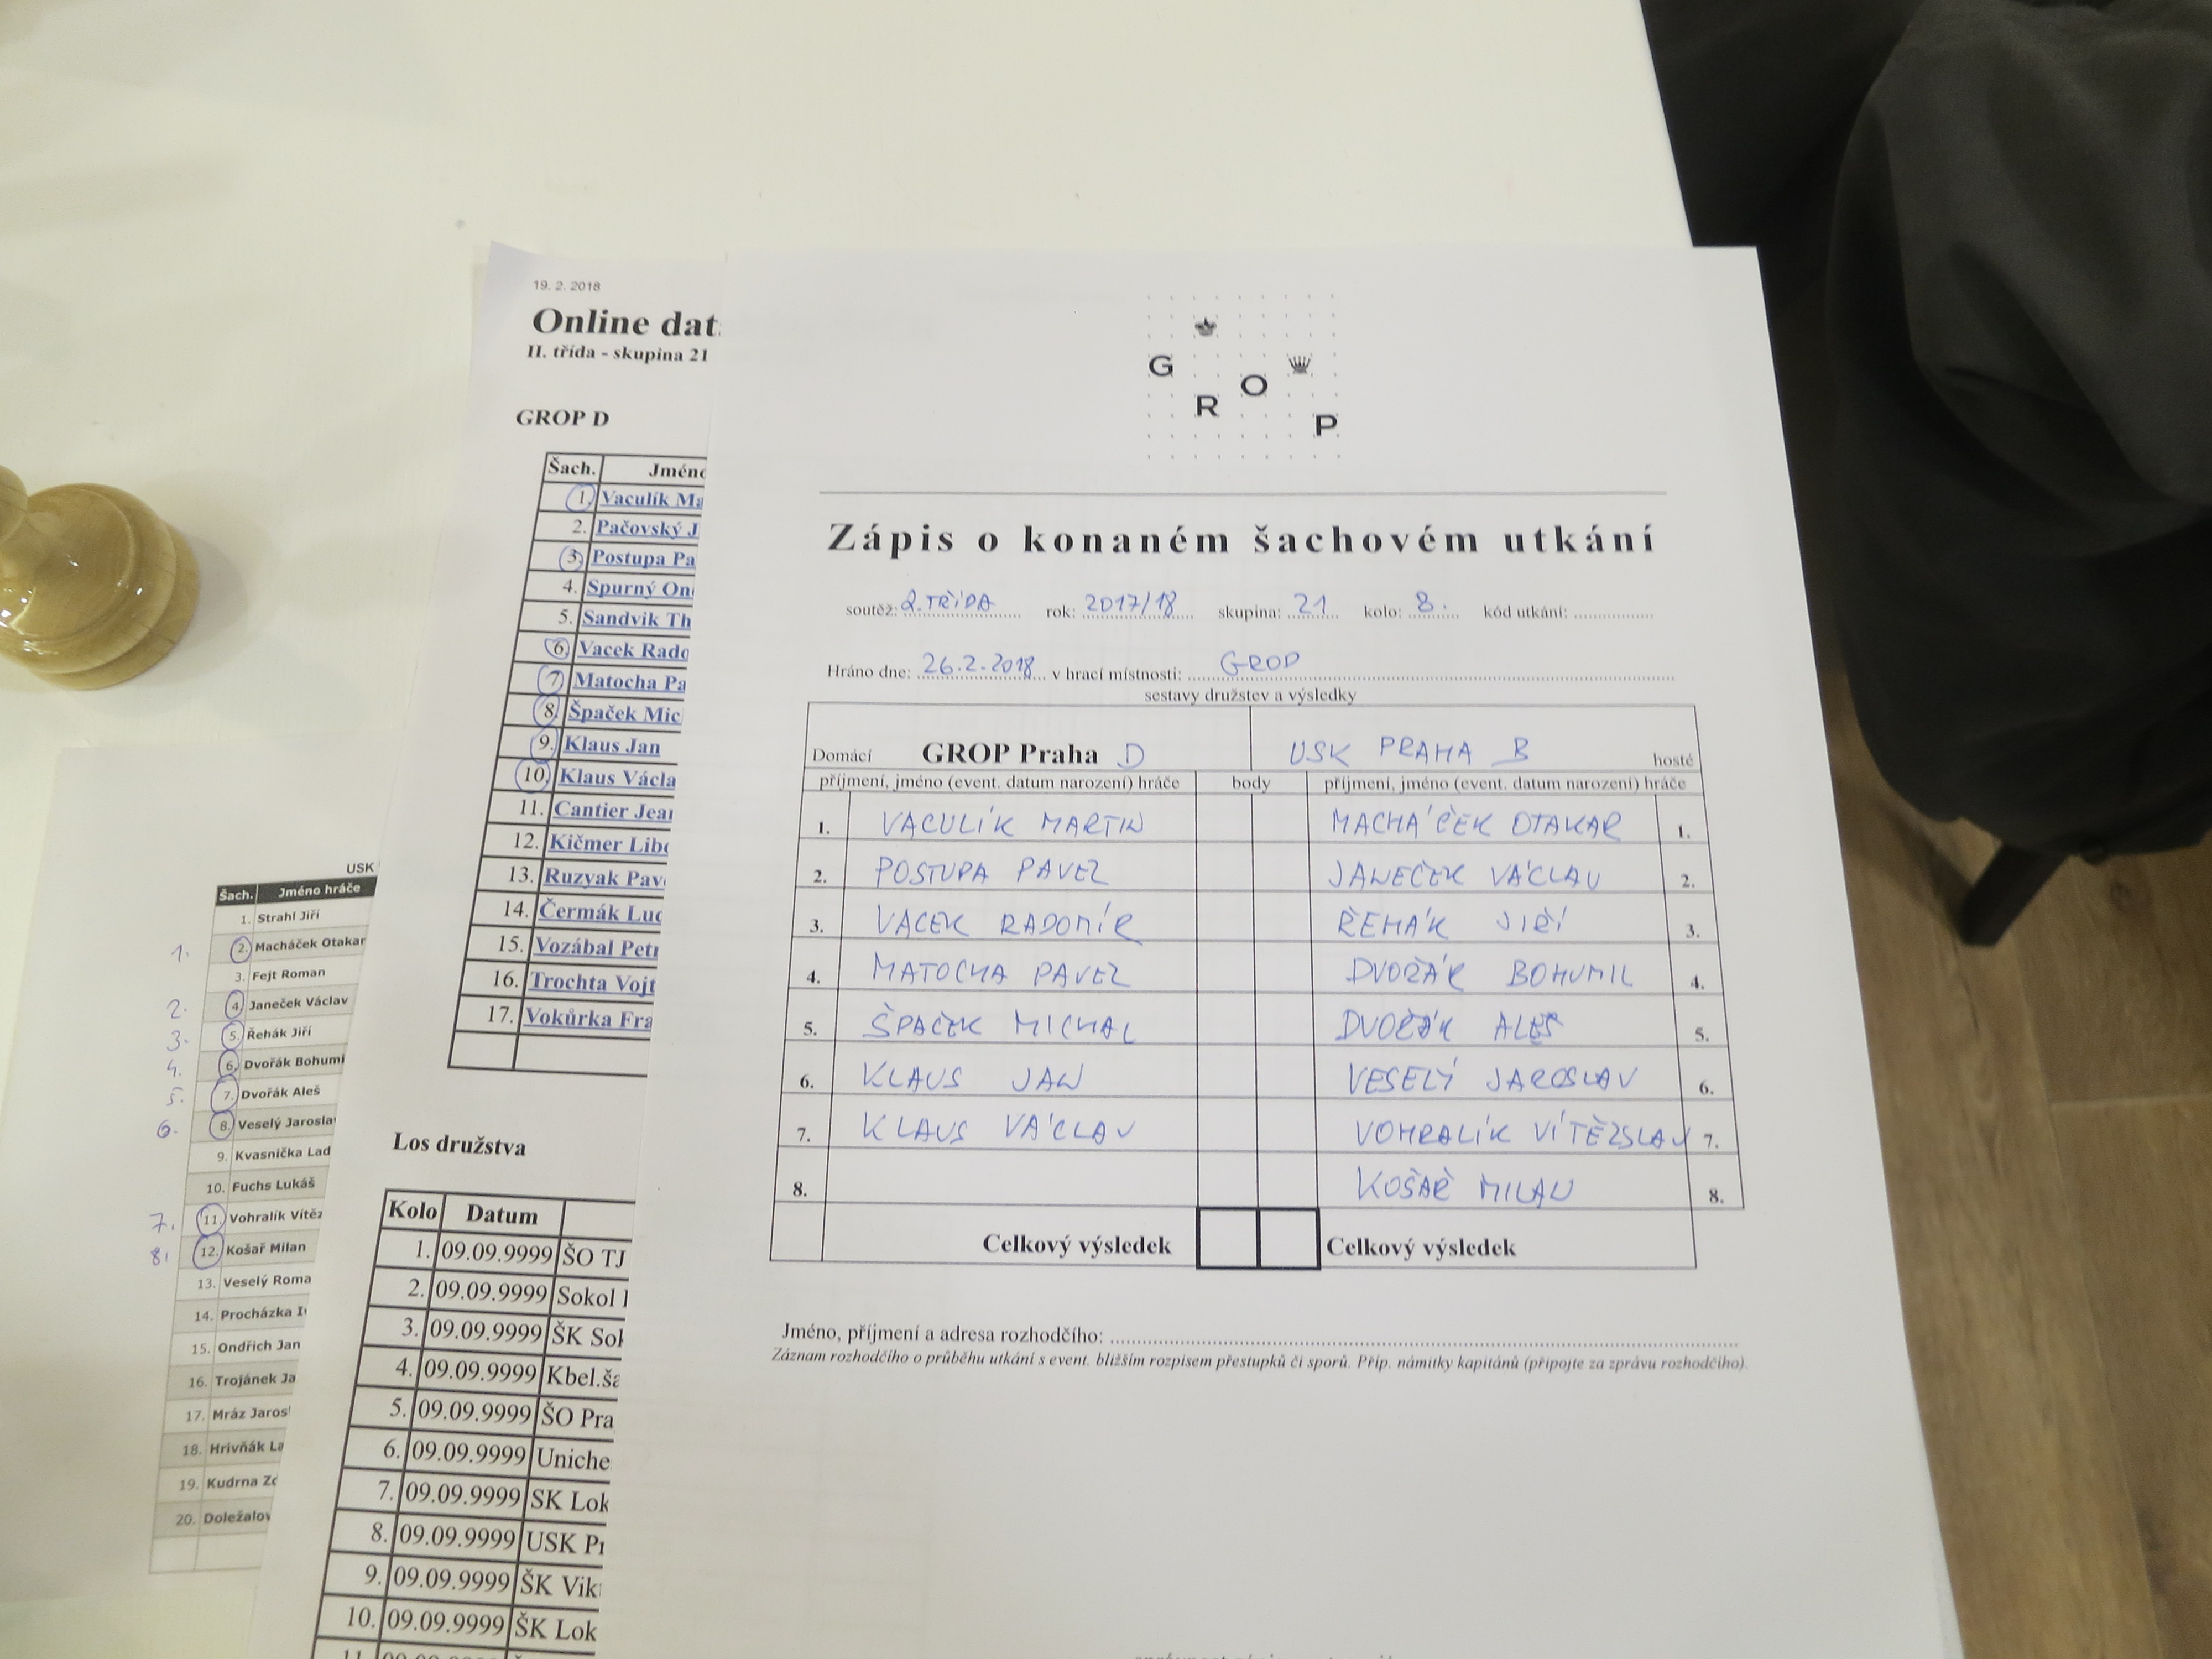 19. 2. 2018
Online dat
II. třída - skupina 21
GROP D
Šach. Jméno
1. Vaculík Ma
2. Pačovský J
3. Postupa Pa
4. Spurný On
5. Sandvik Th
6. Vacek Rado
7. Matocha Pa
8. Špaček Mic
9. Klaus Jan
10. Klaus Václa
11. Cantier Jea
12. Kičmer Lib
13. Ruzyak Pav
14. Čermák Luc
15. Vozábal Petr
16. Trochta Vojt
17. Vokůrka Fra
Los družstva
Kolo Datum
1. 09.09.9999 ŠO TJ
2. 09.09.9999 Sokol
3. 09.09.9999 ŠK Sok
4. 09.09.9999 Kbel.ša
5. 09.09.9999 ŠO Pra
6. 09.09.9999 Uniche
7. 09.09.9999 SK Lok
8. 09.09.9999 USK Pr
9. 09.09.9999 ŠK Vik
10. 09.09.9999 ŠK Lok
USK
Šach. Jméno hráče
1. Strahl Jiří
1. 2. Macháček Otakar
3. Fejt Roman
2. 4. Janeček Václav
3. 5. Řehák Jiří
4. 6. Dvořák Bohumi
5. 7. Dvořák Aleš
6. 8. Veselý Jarosla
9. Kvasnička Lad
10. Fuchs Lukáš
7. 11. Vohralík Vítěz
8. 12. Košař Milan
13. Veselý Roma
14. Procházka
15. Ondřich Jan
16. Trojánek Ja
17. Mráz Jaros
18. Hrivňák La
19. Kudrna Zd
20. Doležalov
G R O P
Zápis o konaném šachovém utkání
soutěž: 2. TŘÍDA rok: 2017/18 skupina: 21 kolo: 8. kód utkání:
Hráno dne: 26.2.2018 v hrací místnosti: GROP
sestavy družstev a výsledky
Domácí GROP Praha D USK PRAHA B hosté
příjmení, jméno (event. datum narození) hráče body příjmení, jméno (event. datum narození) hráče
1. VACULÍK MARTIN MACHÁČEK OTAKAR 1.
2. POSTUPA PAVEL JANEČEK VÁCLAV 2.
3. VACEK RADOMÍR ŘEHÁK JIŘÍ 3.
4. MATOCHA PAVEL DVOŘÁK BOHUMIL 4.
5. ŠPAČEK MICHAL DVOŘÁK ALEŠ 5.
6. KLAUS JAN VESELÝ JAROSLAV 6.
7. KLAUS VÁCLAV VOHRALÍK VÍTĚZSLAV 7.
8. KOŠAŘ MILAN 8.
Celkový výsledek Celkový výsledek
Jméno, příjmení a adresa rozhodčího:
Záznam rozhodčího o průběhu utkání s event. bližším rozpisem přestupků či sporů. Příp. námitky kapitánů (připojte za zprávu rozhodčího).